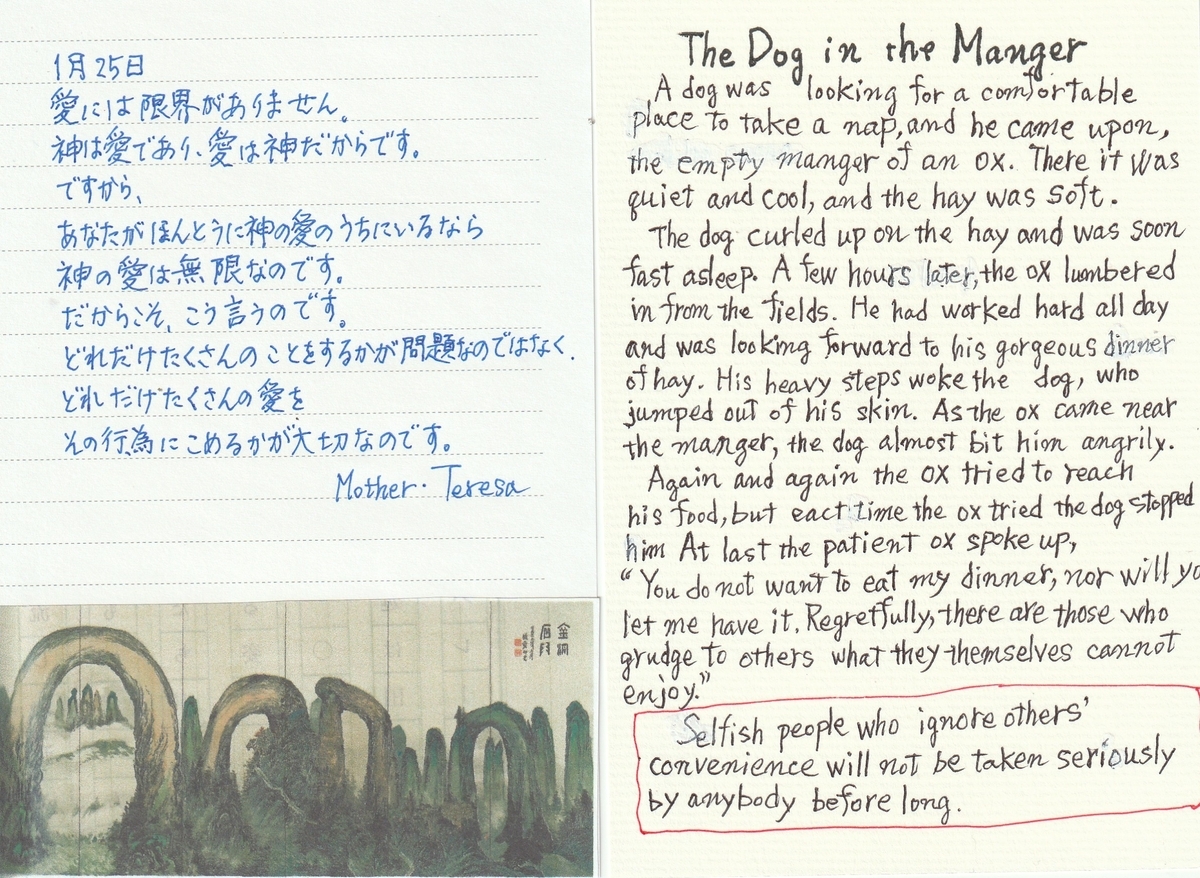 1月25日
愛には限界がありません。
神は愛であり、愛は神だからです。
ですから、
あなたがほんとうに神の愛のうちにいるなら
神の愛は無限なのです。
だからこそ、こう言うのです。
どれだけたくさんのことをするかが問題なのではなく、
どれだけたくさんの愛を
その行為にこめるかが大切なのです。
Mother. Teresa
The Dog in the Manger
A dog was looking for a comfortable
place to take a nap, and he came upon,
the empty manger of an ox. There it was
quiet and cool, and the hay was soft.
The dog curled up on the hay and was soon
fast asleep. A few hours later, the ox lumbered
in from the fields. He had worked hard all day
and was looking forward to his gorgeous dinner
of hay. His heavy steps woke the dog, who
jumped out of his skin. As the ox came near
the manger, the dog almost bit him angrily.
Again and again the ox tried to reach
his food, but eact time the ox tried the dog stopped
him At last the patient ox spoke up,
“You do not want to eat my dinner, nor will yo
let me have it. Regretfully, there are those who
grudge to others what they themselves cannot
enjoy.”
Selfish people who ignore others’
convenience will not be taken seriously
by anybody before long.